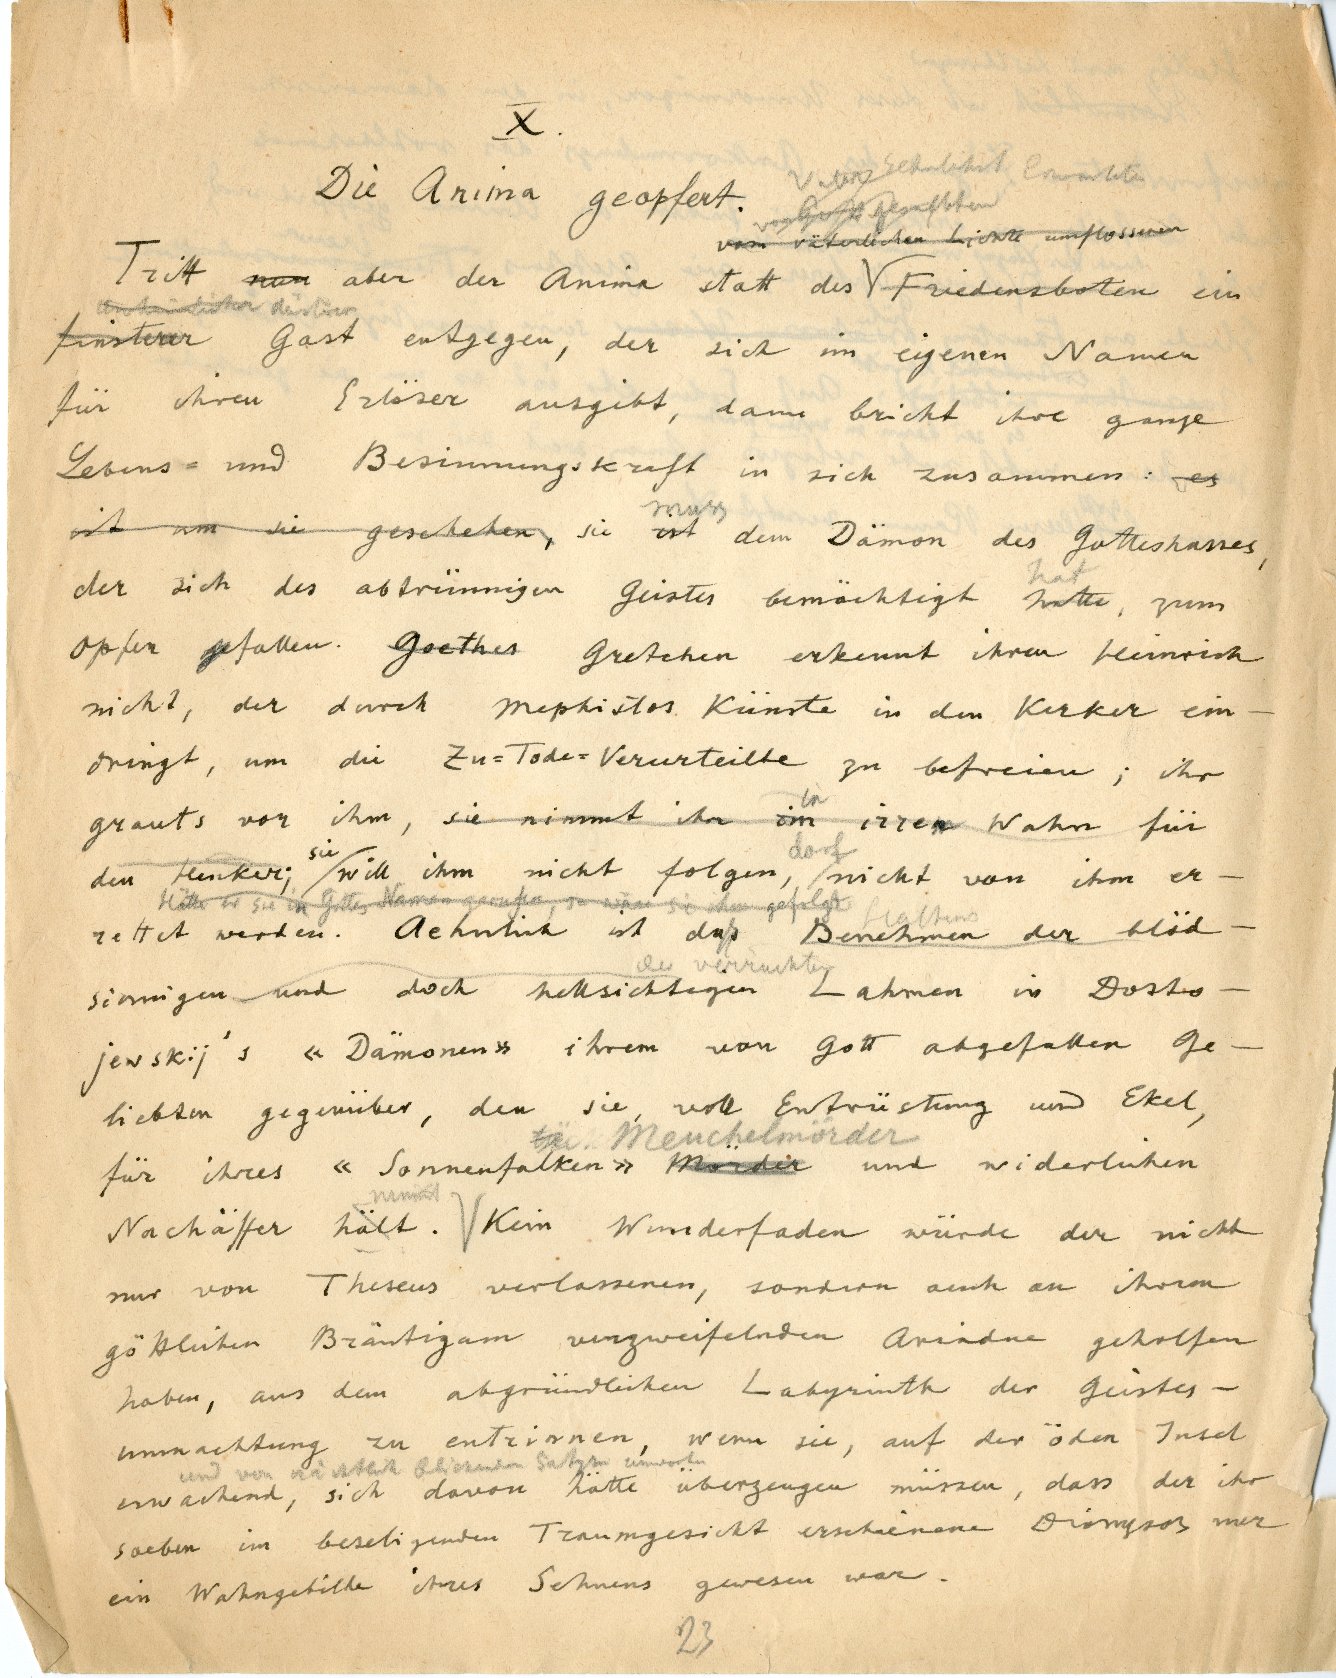 X.
Die Anima geopfert.
vom väterlichen Lichte umflossenen
Tritt nun aber der Anima statt des Friedensboten ein
düstrer
finsterer Gast entgegen, der sich im eigenen Namen
für ihren Erlöser ausgibt, dann bricht ihre ganze
Lebens= und Besinnungskraft in sich zusammen: es
muss
ist um sie geschehen, sie ist dem Dämon des Gotteshasses,
hat
der sich des abtrünnigen Geistes bemächtigt hatte, zum
Opfer gefallen. Goethes Gretchen erkennt ihren Heinrich
nicht, der durch Mephistos Künste in den Kerker ein-
dringt, um die Zu=Tode=Verurteilte zu befreien; ihr
in
grauts vor ihm, sie nimmt ihn im irren Wahn für
sie darf
den Henker; will ihm nicht folgen, nicht von ihm er-
Hätte er sie in Gottes Namen gerufen, so wäre sie ihm gefolgt
rettet werden. Aehnlich ist das Benehmen der blöd-
der verrückten
sinnigen und doch hellsichtigen Lahmen in Dosto-
jewskij's «Dämonen» ihrem von Gott abgefallen Ge-
liebten gegenüber, den sie, voll Entrüstung und Ekel,
Meuchelmörder
für ihres «Sonnenfalken» Mörder und widerlichen
nimmt
Nachäffer hält. Kein Wunderfaden würde der nicht
nur von Theseus verlassenen, sondern auch an ihrem
göttlichen Bräutigam verzweifelnden Ariadne geholfen
haben, aus dem abgründlichen Labyrinth der Geistes-
umnachtung zu entrinnen, wenn sie, auf der öden Insel
und von nächtlich blickenden Satyrn umworben
erwachend, sich davon hätte überzeugen müssen, dass der ihr
soeben im beseligenden Traumgesicht erschienene Dionysos nur
ein Wahngebilde ihres Sehnens gewesen war.
23